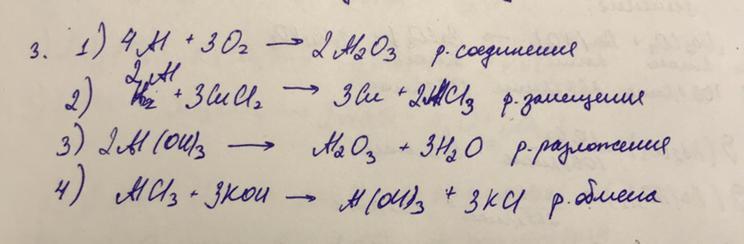 3. 1) 4Al + 3O₂ → 2Al₂O₃ р. соединения
2) 2Al + 3CuCl₂ → 3Cu + 2AlCl₃ р. замещения
3) 2Al(OH)₃ → Al₂O₃ + 3H₂O р. разложения
4) AlCl₃ + 3KOH → Al(OH)₃ + 3KCl р. обмена